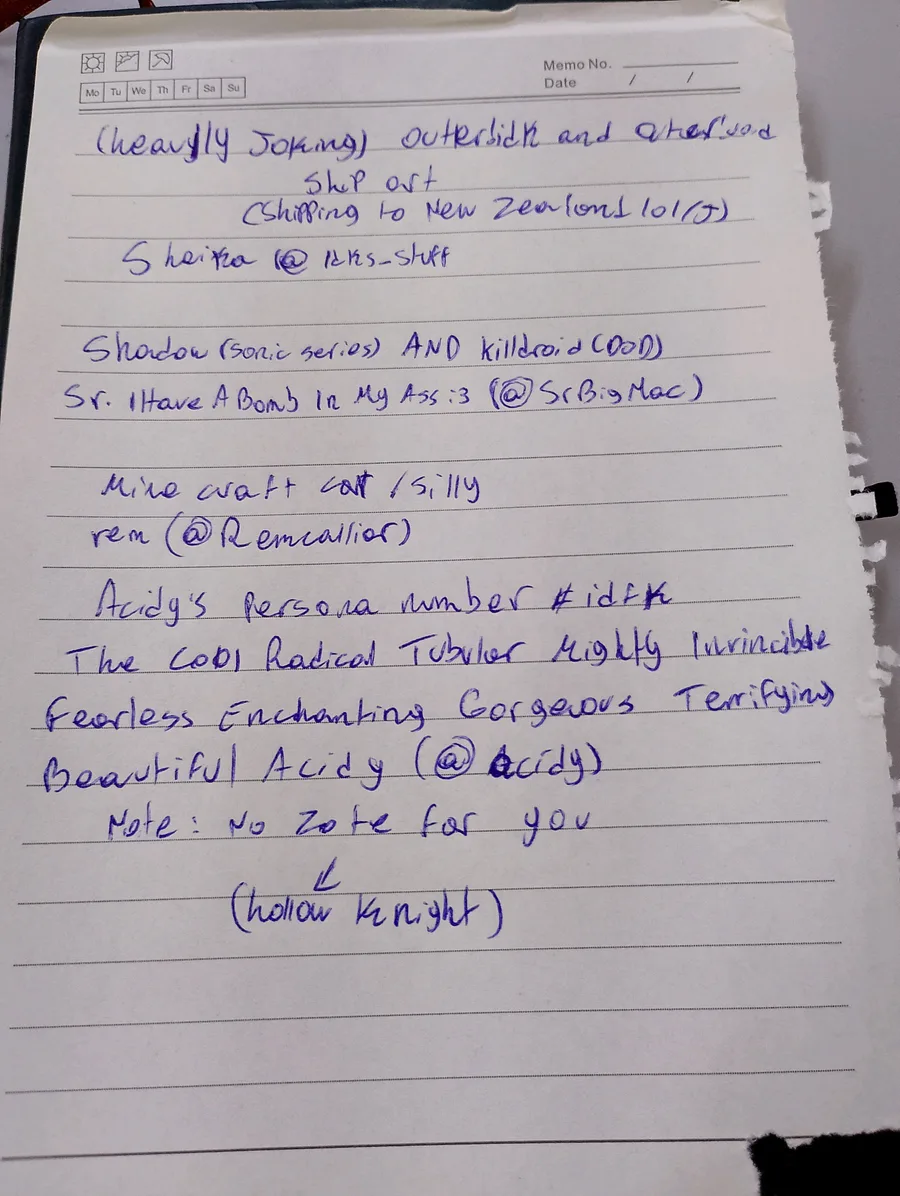 Memo No.
Date / /
Mo Tu We Th Fr Sa Su
(heavily Joking) outerdick and
Ship art
(Shipping to New Zealand lol/J)
Sheika (@ idks_stuff
Shadow (Sonic series) AND Killdroid (DOD)
Sr. I Have A Bomb In My Ass :3 (@SrBigMac)
Minecraft cat /silly
rem (@Remcallior)
Acidy's persona number # idfk
The Cool Radical Tubular Mighty Invincible
Fearless Enchanting Gorgeous Terrifying
Beautiful Acidy (@acidy)
Note: No Zote for you
(hollow knight)